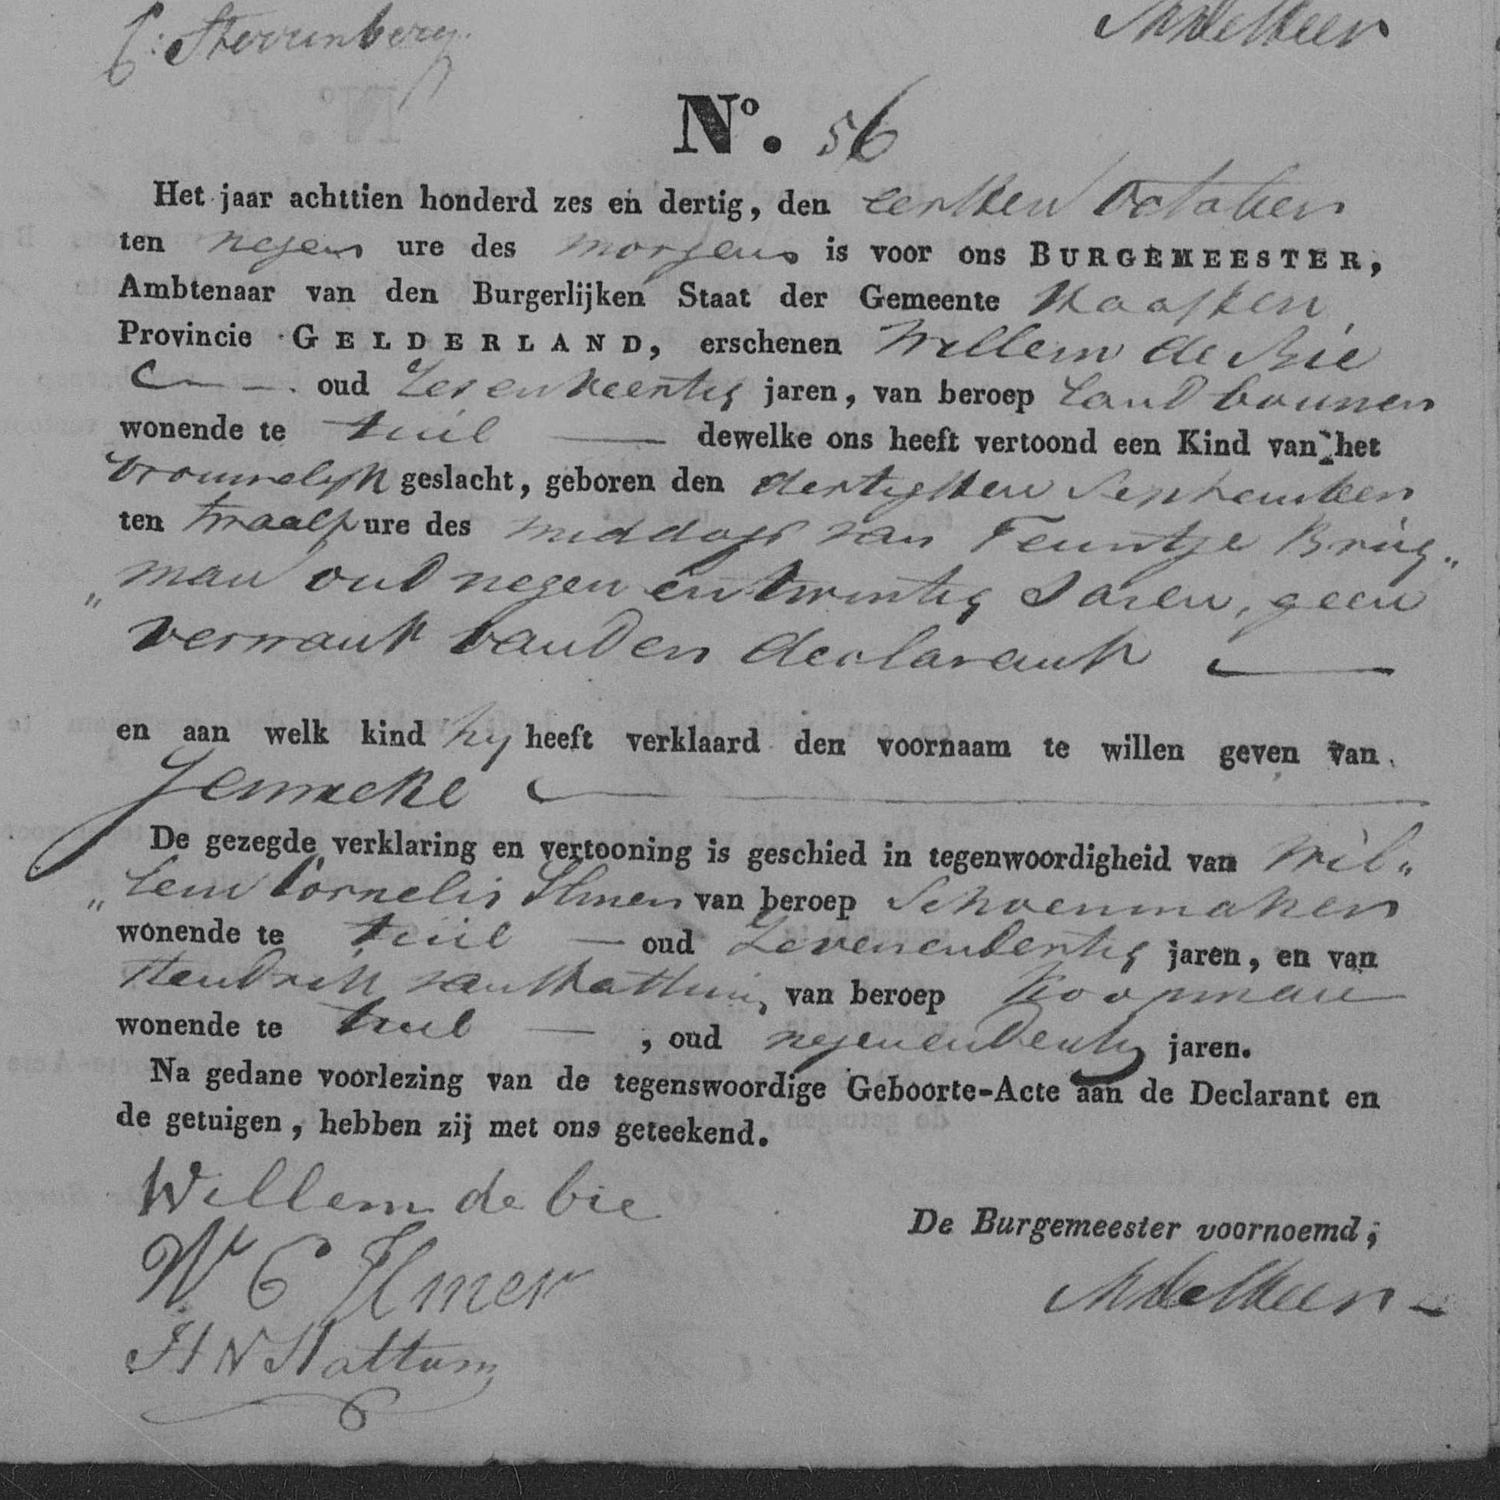 C: Sterrenberg.
No. 56
Het jaar achttien honderd zes en dertig, den eersten October
ten negen ure des morgens is voor ons BURGEMEESTER,
Ambtenaar van den Burgerlijken Staat der Gemeente Haaften,
Provincie GELDERLAND, erschenen Willem de Bie
oud Zevenveertig jaren, van beroep Landbouwer
wonende te tuil — dewelke ons heeft vertoond een Kind van het
vrouwelijk geslacht, geboren den dertigsten September
ten twaalf ure des middags van Teuntje Brug„
„man oud negen en twintig Jaren, geen
verwant van den declarant —
en aan welk kind hy heeft verklaard den voornaam te willen geven van
Jenneke —
De gezegde verklaring en vertooning is geschied in tegenwoordigheid van Wil„
„lem Cornelis van beroep Schoenmaker
wonende te tuil — oud Zevenendertig jaren, en van
Hendrik van Hattum, van beroep Koopman
wonende te tuil — , oud negenendertig jaren.
Na gedane voorlezing van de tegenswoordige Geboorte-Acte aan de Declarant en
de getuigen, hebben zij met ons geteekend.
Willem de bie
De Burgemeester voornoemd;
W C
H V Hattum